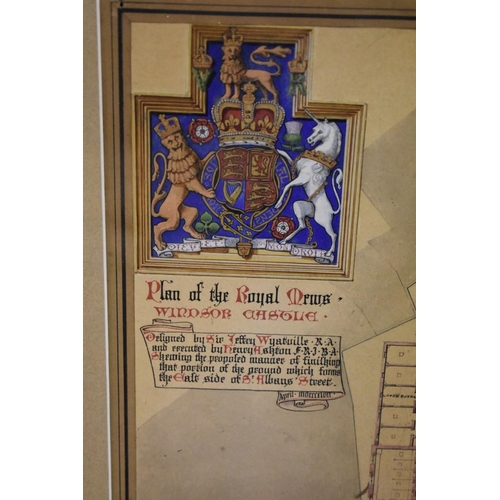 DIEU ET MON DROIT
Plan of the Royal Mews.
WINDSOR CASTLE.
Designed by Sir Jeffry Wyatville. R.A.
and executed by Henry Ashton F.R.I.B.A.
Shewing the proposed manner of finishing
that portion of the ground which forms
the East side of St. Albans Street.
April